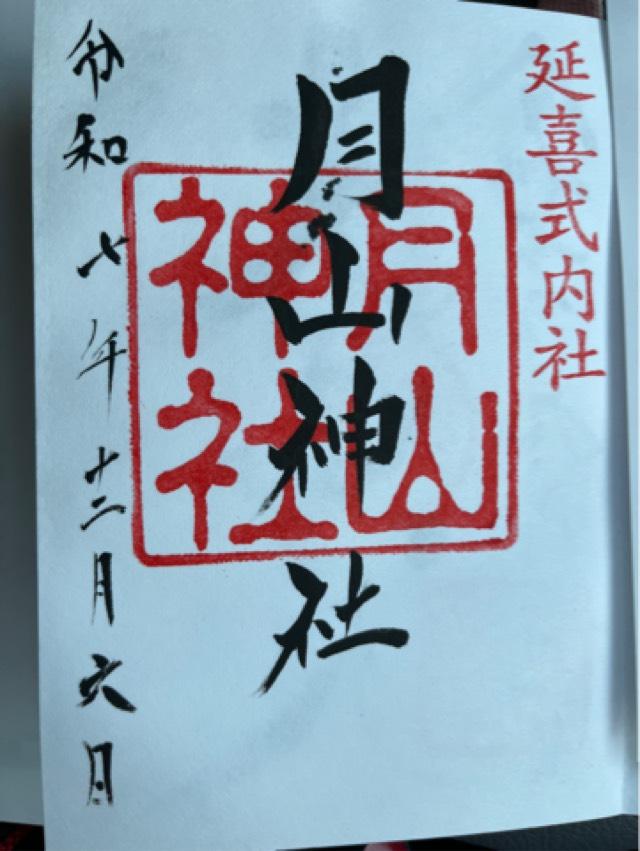 延喜式内社
月山神社
月山
神社
令和七年十二月六日